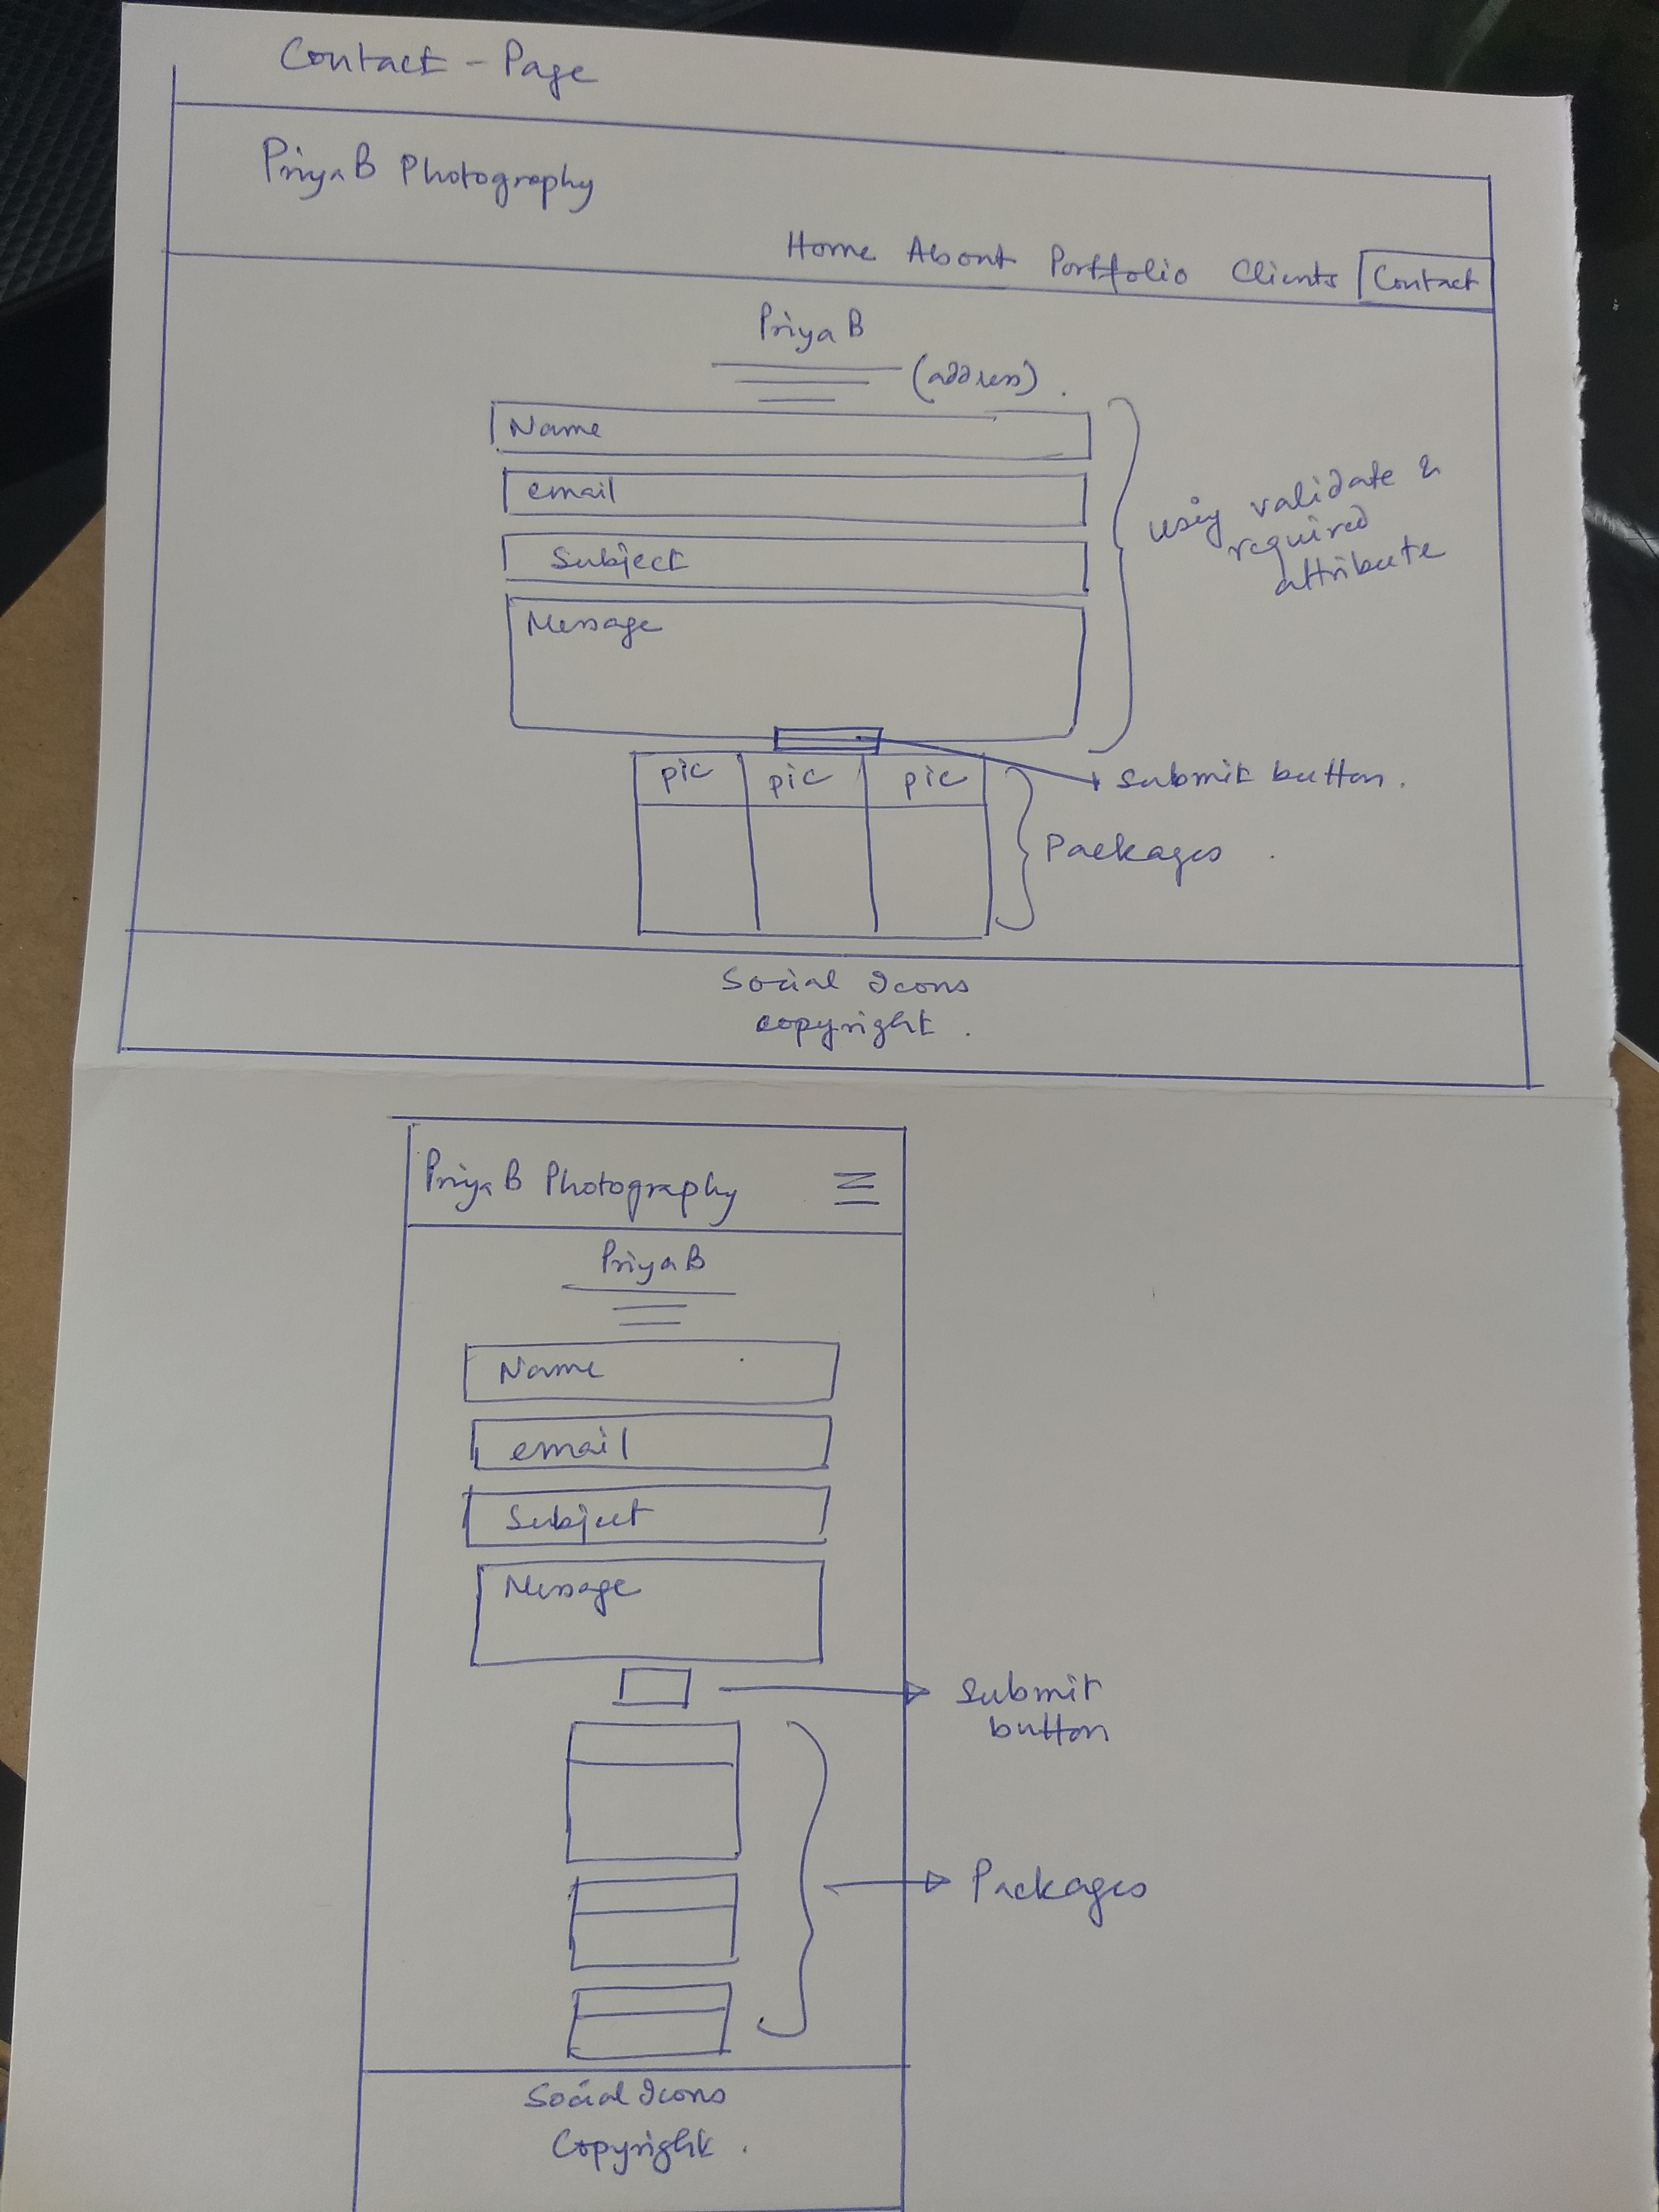 Contact - Page
Priya B Photography
Home About Portfolio Clients Contact
Priya B
(address).
Name
email
Subject
Message
using validate &
required
attribute
Submit button.
pic pic pic
Packages.
Social Icons
copyright.
Priya B Photography
Priya B
Name
email
Subject
Message
Submit
button
Packages
Social Icons
Copyright.